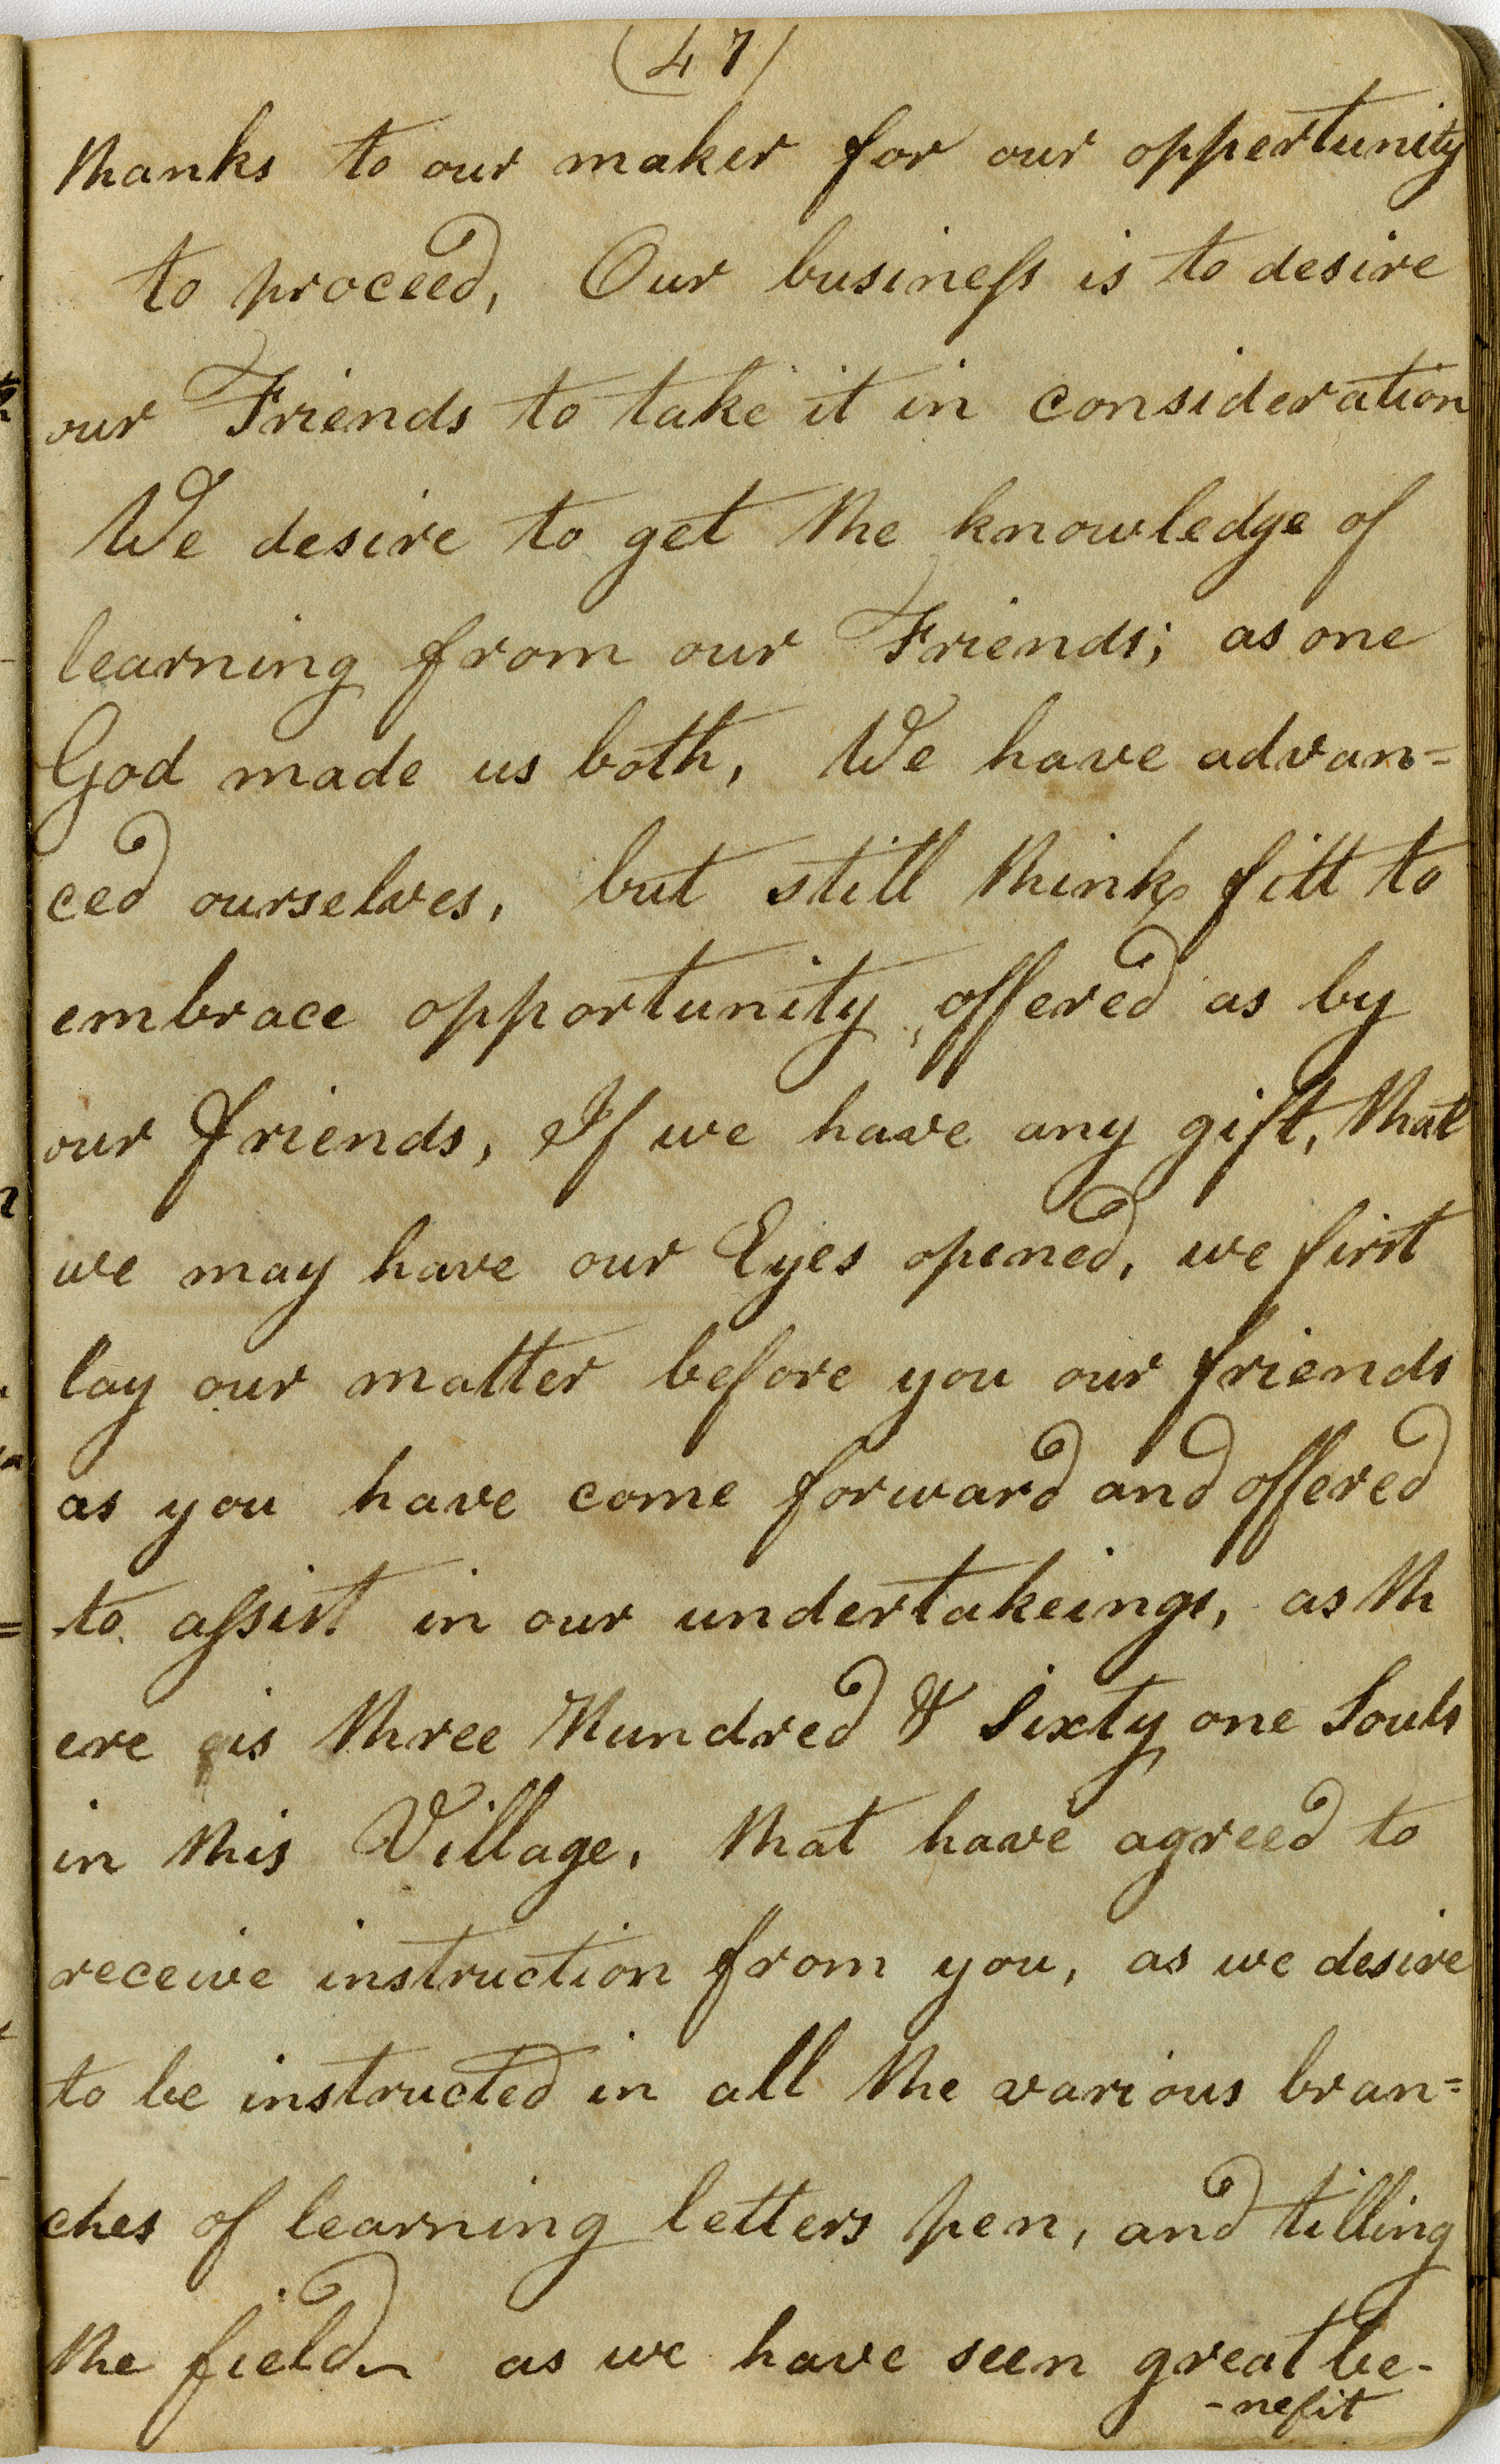 (47)
thanks to our maker for our oppertunity
to proceed, Our business is to desire
our Friends to take it in consideration
We desire to get the knowledge of
learning from our Friends; as one
God made us both, We have advan=
ced ourselves, but still think fitt to
embrace opportunity, offered as by
our friends, If we have any gift, that
we may have our Eyes opened, we first
lay our matter before you our friends
as you have come forward and offered
to assist in our undertakeings, as th
ere is three Hundred & Sixty one Souls
in this Village, that have agreed to
receive instruction from you, as we desire
to be instructed in all the various bran=
ches of learning letters pen, and tilling
the field as we have seen great be-
-nefit